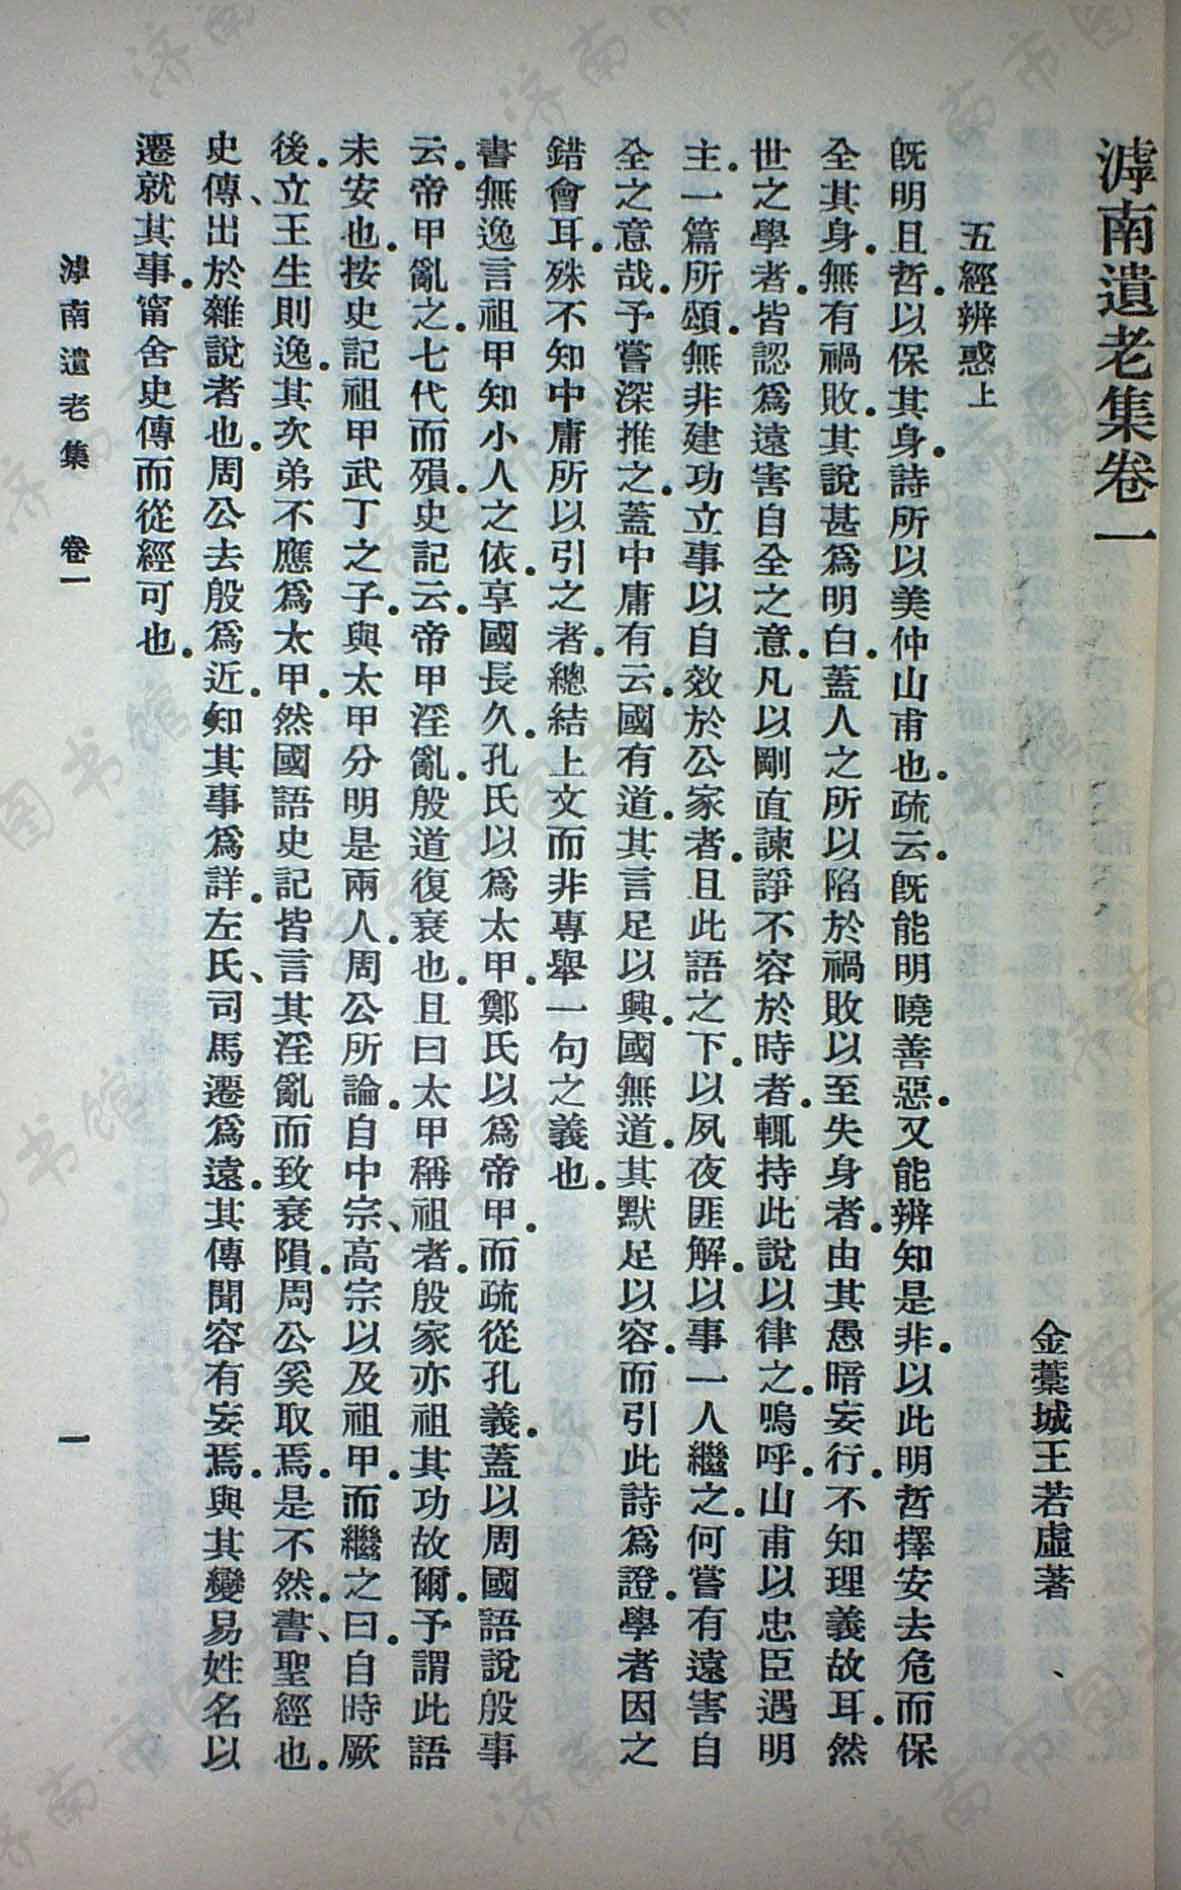 滹南遺老集卷一
金藁城王若虛著
五經辨惑上
旣明且哲。以保其身。詩所以美仲山甫也。疏云。旣能明曉善惡。又能辨知是非。以此明哲擇安去危而保
全其身。無有禍敗。其說甚爲明白。蓋人之所以陷於禍敗以至失身者。由其愚暗妄行。不知理義故耳。然
世之學者。皆認爲遠害自全之意。凡以剛直諫諍不容於時者。輒持此說以律之。嗚呼。山甫以忠臣遇明
主。一篇所頌。無非建功立事以自效於公家者。且此語之下。以夙夜匪解。以事一人繼之。何嘗有遠害自
全之意哉。予嘗深推之。蓋中庸有云。國有道。其言足以興。國無道。其默足以容。而引此詩爲證。學者因之
錯會耳。殊不知中庸所以引之者。總結上文而非專舉一句之義也。
書無逸言祖甲知小人之依。享國長久。孔氏以爲太甲。鄭氏以爲帝甲。而疏從孔義。蓋以周國語說殷事
云。帝甲亂之。七代而殞。史記云。帝甲淫亂。殷道復衰也。且曰太甲稱祖者。殷家亦祖其功故爾。予謂此語
未安也。按史記祖甲武丁之子。與太甲分明是兩人。周公所論。自中宗、高宗以及祖甲。而繼之曰。自時厥
後。立王生則逸。其次弟不應爲太甲。然國語史記皆言其淫亂而致衰隕。周公奚取焉。是不然。書、聖經也。
史傳、出於雜說者也。周公去殷爲近。知其事爲詳。左氏、司馬遷爲遠。其傳聞容有妄焉。與其變易姓名以
遷就其事。甯舍史傳而從經可也。
滹南遺老集 卷一
一